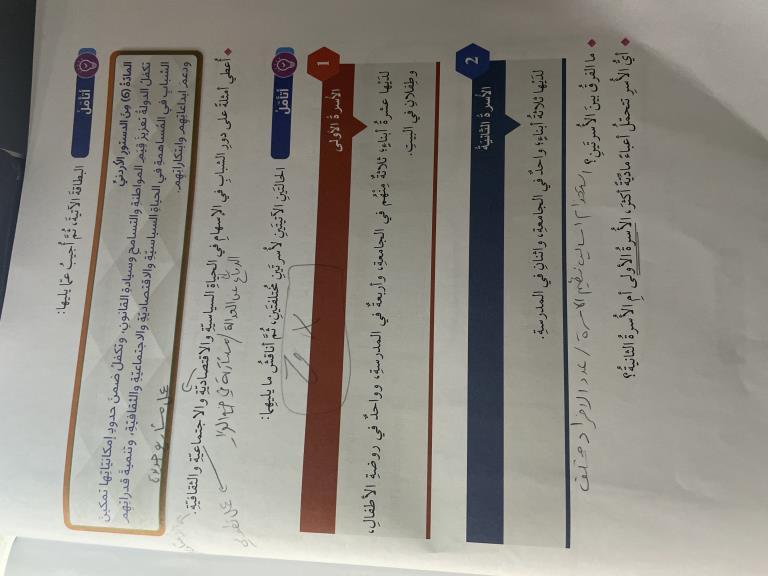 أتأمل البطاقة الآتية، ثم أجيب عما يليها:
المادة (6) من الدستور الأردني
تكفل الدولة تعزيز قيم المواطنة والتسامح وسيادة القانون، وتكفل ضمن حدود إمكانياتها تمكين
الشباب في المساهمة في الحياة السياسية والاقتصادية والاجتماعية والثقافية، وتنمية قدراتهم
ودعم إبداعاتهم وابتكاراتهم.
♦ أعطي أمثلة على دور الشباب في الإسهام في الحياة السياسية والاقتصادية والاجتماعية والثقافية.
أتأمل الحالتين الآتيتين لأسرتين مختلفتين، ثم أناقش ما يليهما:
1 الأسرة الأولى
لديها عشرة أبناء؛ ثلاثة منهم في الجامعة، وأربعة في المدرسة، وواحد في روضة الأطفال،
وطفلان في البيت.
2 الأسرة الثانية
لديها ثلاثة أبناء؛ واحد في الجامعة، واثنان في المدرسة.
♦ ما الفرق بين الأسرتين؟ استخدام اساليب تنظيم الاسرة / عدد الافراد مختلف
♦ أي الأسر تتحمل أعباء مادية أكثر، الأسرة الأولى أم الأسرة الثانية؟